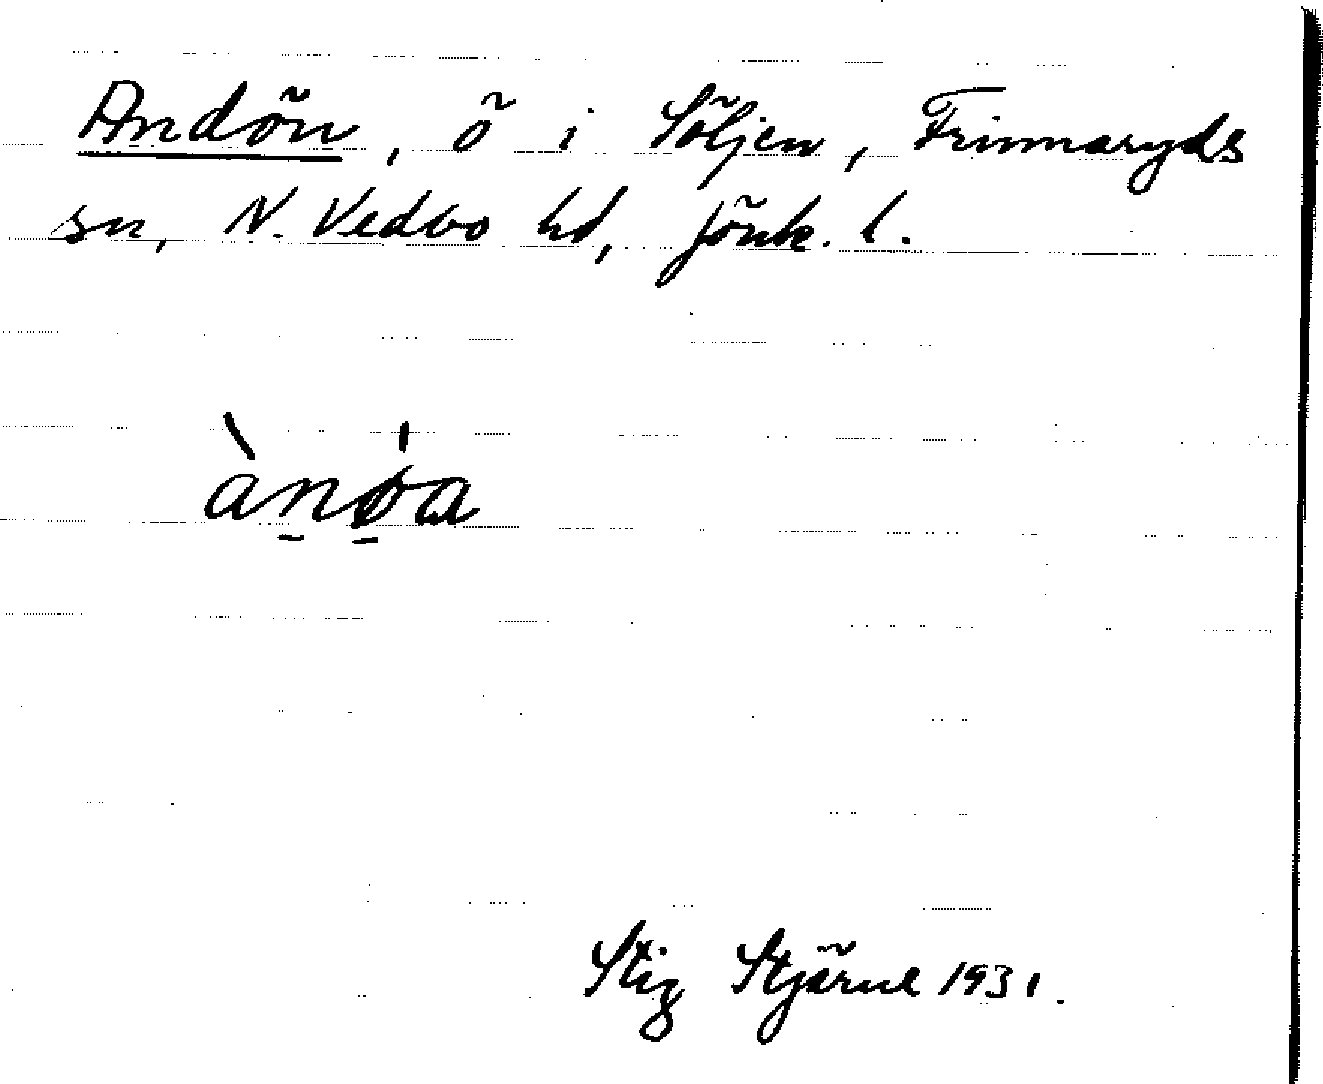 Andön, ö i Söljen, Frinnaryds
sn, N. Vedbo hd, Jönk. l.
ànøa
Stig Stjärne 1931.